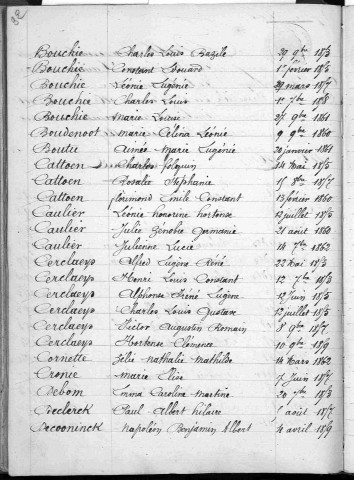 Bouchie Charles Louis Bazile 29 9bre 1853
Bouchie Constant Edouard 1er février 1856
Bouchie Léonie Eugénie 29 mars 1857
Bouchie Charles Louis 1er 7bre 1858
Bouchie Marie Louise 27 9bre 1861
Boudenoot Marie Célina Léonie 9 9bre 1860
Boutie Aimée Marie Eugénie 20 janvier 1861
Cattoen Charles folquin 14 mai 1855
Cattoen Rosalie Stéphanie 15 8bre 1857
Cattoen florimond Emile Constant 13 février 1860
Caulier Léonie honorine hortense 12 juillet 1856
Caulier Julie Zénobie Germanie 21 août 1860
Caulier Julienne Lucie 14 7bre 1862
Cerclaeys Alfred Eugène René 22 mai 1853
Cerclaeys Henri Louis Constant 12 7bre 1853
Cerclaeys Alphonse Iréné Eugène 12 juin 1855
Cerclaeys Charles Louis Gustave 12 juillet 1855
Cerclaeys Victor Augustin Romain 8 9bre 1857
Cerclaeys Hortense Clémence 10 9bre 1859
Cornette Zélie nathalie mathilde 14 mars 1862
Cronie marie Elise juin 1857
Debom Emma Caroline Martine 20 7bre 1853
Declerck Paul Albert hilaire août 1857
Decooninck Napoléon Benjamin Albert 4 avril 1859